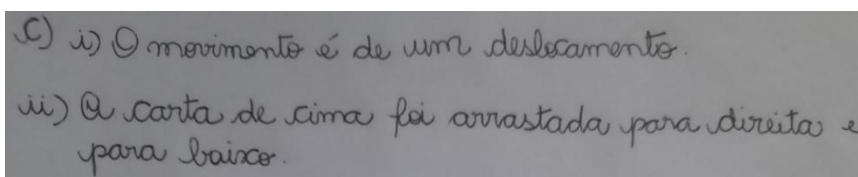 c) i) O movimento é de um deslocamento.
ii) A carta de cima foi arrastada para direita e
para baixo.